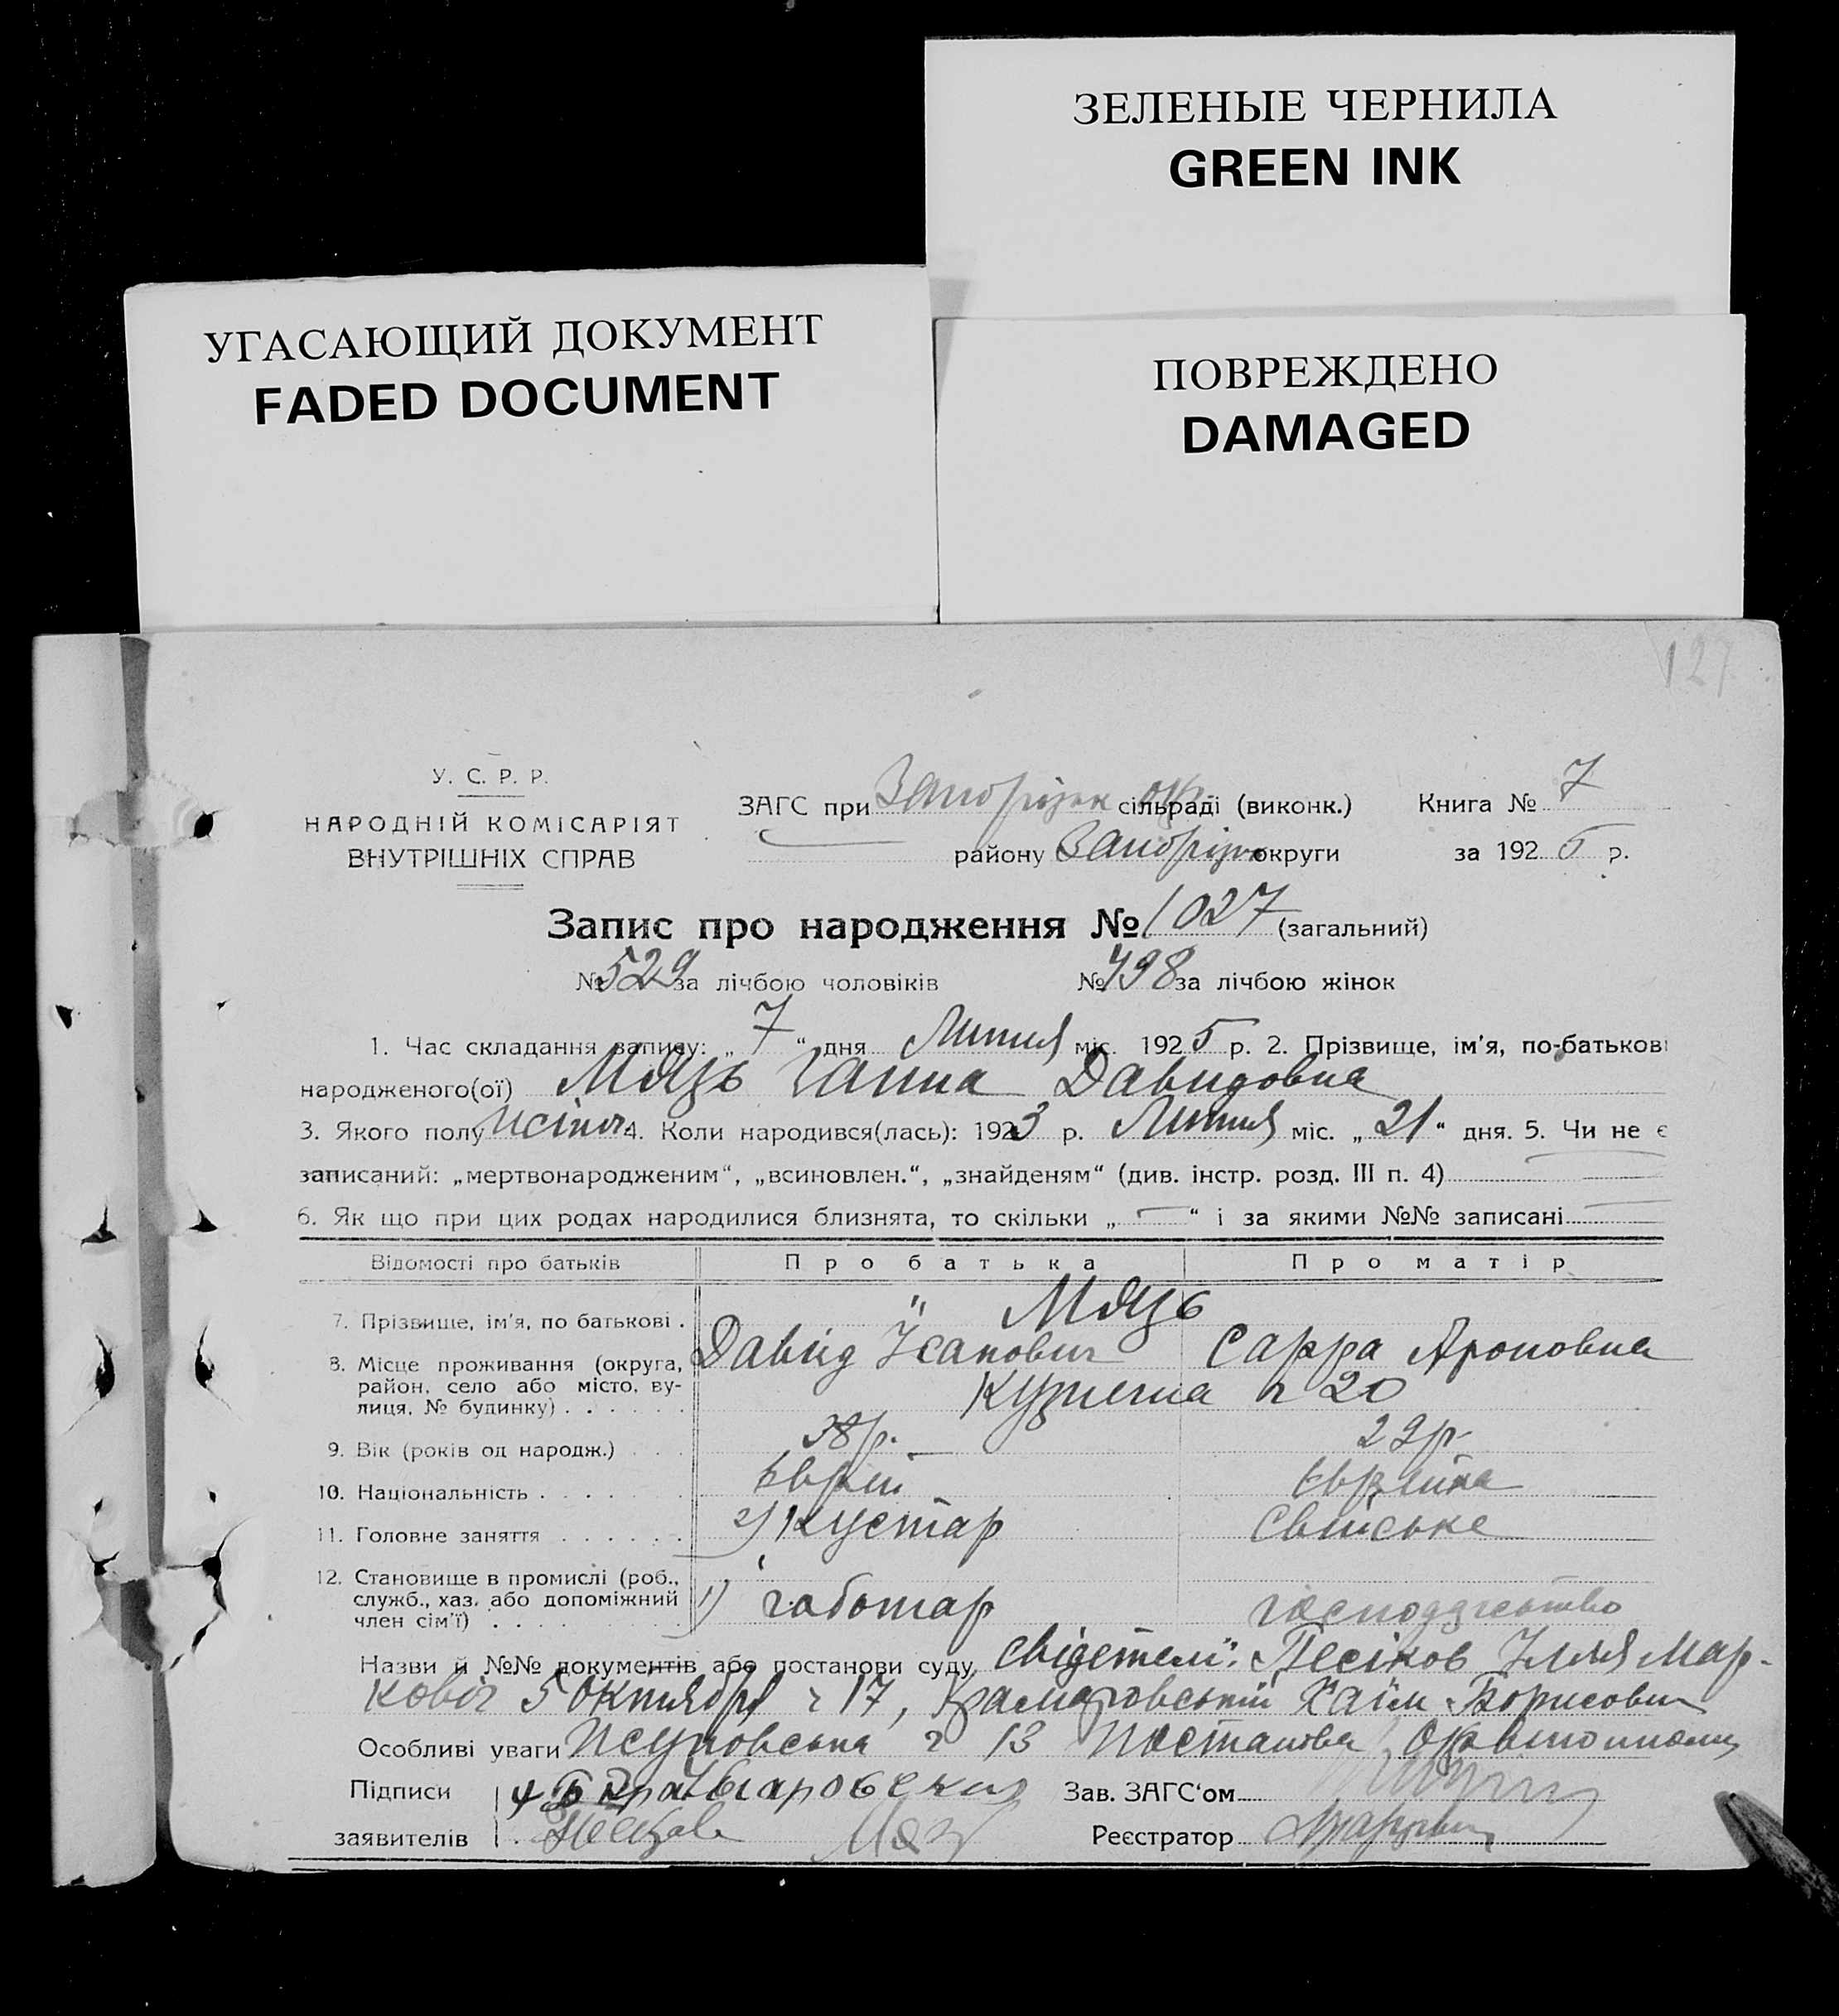 ЗЕЛЕНЫЕ ЧЕРНИЛА
GREEN INK
УГАСАЮЩИЙ ДОКУМЕНТ
FADED DOCUMENT
ПОВРЕЖДЕНО
DAMAGED
127
У. С. Р. Р.
НАРОДНІЙ КОМІСАРІЯТ
ВНУТРІШНІХ СПРАВ
ЗАГС при Запоріжск окр. сільраді (виконк.) Книга № 7
району Запоріжк округи за 1925 р.
Запис про народження № 1027 (загальний)
№ 529 за лічбою чоловіків № 498 за лічбою жінок
1. Час складання запису: „ 7 “ дня Липня міс. 1925 р. 2. Прізвище, ім'я, по-батькові
народженого(ої) Мязь Ганна Давидовна
3. Якого полу жіноч 4. Коли народився(лась): 1923 р. Липня міс. „ 21 “ дня. 5. Чи не є
записаний: „мертвонародженим“, „всиновлен.“, „знайденям“ (див. інстр. розд. III п. 4)
6. Як що при цих родах народилися близнята, то скільки „ — “ і за якими №№ записані
Відомості про батьків Про батька Про матір
7. Прізвище, ім'я, по батькові . " Мязь
Давид Ісакович Сарра Ароновна
8. Місце проживання (округа, район, село або місто, вулиця, № будинку) . . . . . .
ч 20
9. Вік (років од народж.) . . . 38 р. 29 р.
10. Національність . . . . . . Єврей Єврейка
11. Головне заняття . . . . . . 2) Кустар Свійське
12. Становище в промислі (роб., служб., хаз. або допоміжний член сім'ї) . . . .
1) чоботар господарство
Назви й №№ документів або постанови суду Свідетели: Песіков Ілля Мар-
ковіч 5 октября ч 17, Хаїм Борисович
Особливі уваги ч 13 Постанова
Підписи
заявителів
Зав. ЗАГС'ом
Реєстратор